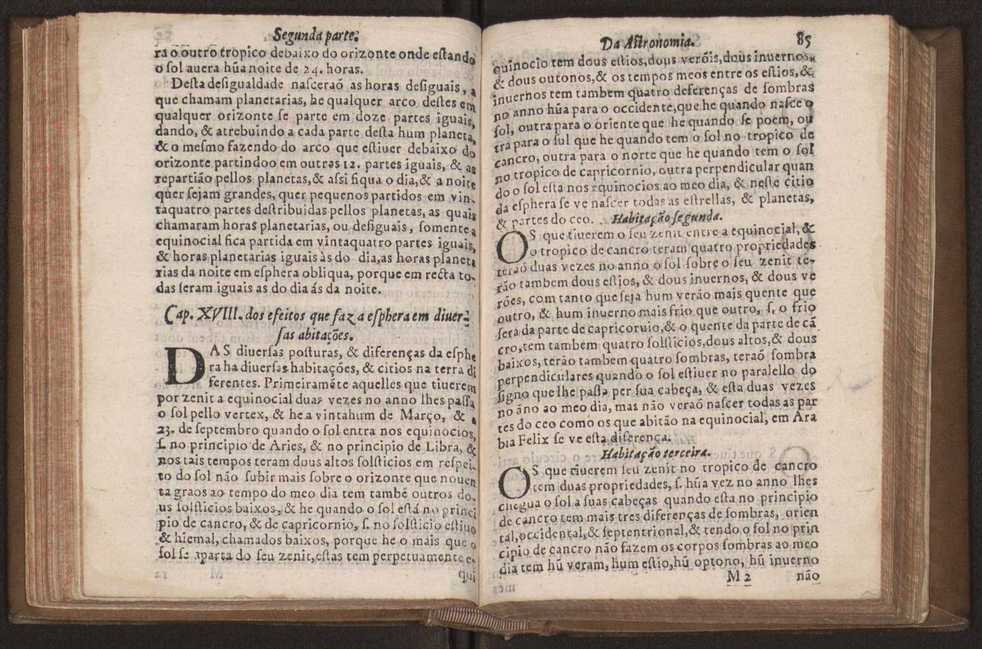 Segunda parte.
ra o outro tropico debaixo do orizonte onde estando
o sol auera hũa noite de 24. horas.
Desta desigualdade nasceraõ as horas desiguais, a
que chamam planetarias, he qualquer arco destes em
qualquer orizonte se parte em doze partes iguais,
dando, & atrebuindo a cada parte desta hum planeta,
& o mesmo fazendo do arco que estiuer debaixo do
orizonte partindoo em outras 12. partes iguais, & as
repartião pellos planetas, & assi fiqua o dia, & a noite
quer sejam grandes, quer pequenos partidos em vin-
taquatro partes destribuidas pellos planetas, as quais
chamaram horas planetarias, ou desiguais, somente a
equinocial fica partida em vintaquatro partes iguais,
& horas planetarias iguais às do dia, as horas planeta
rias da noite em esphera obliqua, porque em recta to-
das seram iguais as do dia ás da noite.
Cap. XVIII. dos efeitos que faz a esphera em diuer-
sas abitações.
DAS diuersas posturas, & diferenças da esphe
ra ha diuersas habitações, & citios na terra di
ferentes. Primeiramẽte aquelles que tiuerem
por zenit a equinocial duas vezes no anno lhes passa
o sol pello vertex, & he a vintahum de Março, & a
23. de septembro quando o sol entra nos equinocios,
s. no principio de Aries, & no principio de Libra, &
nos tais tempos teram dous altos solsticios em respei-
to do sol não subir mais sobre o orizonte que nouen
ta graos ao tempo do meo dia tem tambẽ outros do-
us solsticios baixos, & he quando o sol está no princi
pio de cancro, & de capricornio, s. no solsticio estiuo
& hiemal, chamados baixos, porque he o mais que o
sol se aparta do seu zenit, estas tem perpetuamente e-
qui
Da Astronomia. 85
quinocio tem dous estios, dous verõis, dous inuernos,
& dous outonos, & os tempos meos entre os estios, &
inuernos tem tambem quatro deferenças de sombras
no anno hũa para o occidente, que he quando nasce o
sol, outra para o oriente que he quando se poem, ou
tra para o sul que he quando tem o sol no tropico de
cancro, outra para o norte que he quando tem o sol
no tropico de capricornio, outra perpendicular quan
do o sol esta nos equinocios ao meo dia, & neste citio
da esphera se ve nascer todas as estrellas, & planetas,
& partes do ceo. Habitação segunda.
OS que tiuerem o seu zenit entre a equinocial, &
o tropico de cancro teram quatro propriedades
teraõ duas vezes no anno o sol sobre o seu zenit te-
rão tambem dous estios, & dous inuernos, & dous ve
rões, com tanto que seja hum verão mais quente que
outro, & hum inuerno mais frio que outro, s. o frio
sera da parte de capricornio, & o quente da parte de cã
cro, tem tambem quatro solsticios, dous altos, & dous
baixos, terão tambem quatro sombras, teraõ sombra
perpendiculares quando o sol estiuer no paralello do
signo que lhe passa per sua cabeça, & esta duas vezes
no ãno ao meo dia, mas não veraõ nascer todas as par
tes do ceo como os que abitão na equinocial, em Ara
bia Felix se ve esta diferença.
Habitação terceira.
OS que tiuerem seu zenit no tropico de cancro
tem duas propriedades, s. hũa vez no anno lhes
chegua o sol a suas cabeças quando esta no principio
de cancro tem mais tres diferenças de sombras, orien
tal, occidental, & septentrional, & tendo o sol no prin
cipio de cancro não fazem os corpos sombras ao meo
dia tem hũ veram, hum estio, hũ optono, hũ inuerno
M 2 não